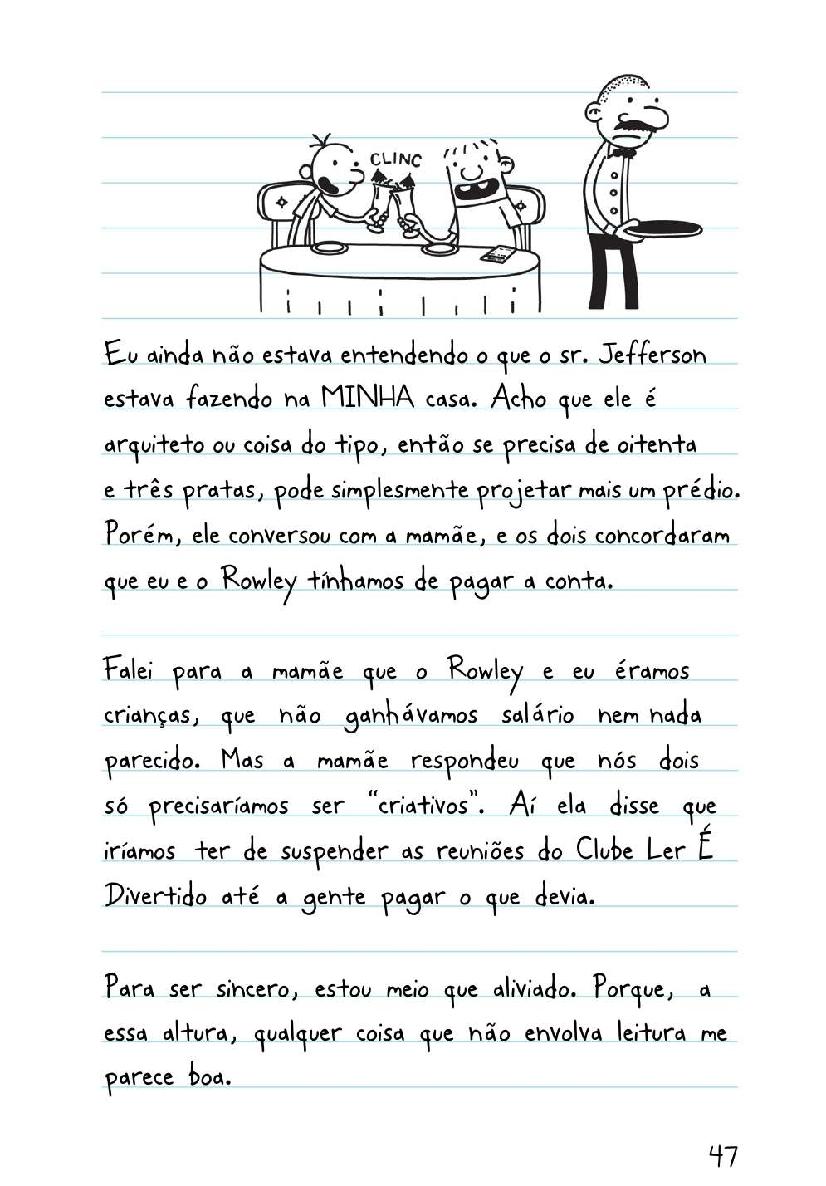 CLINC
Eu ainda não estava entendendo o que o sr. Jefferson
estava fazendo na MINHA casa. Acho que ele é
arquiteto ou coisa do tipo, então se precisa de oitenta
e três pratas, pode simplesmente projetar mais um prédio.
Porém, ele conversou com a mamãe, e os dois concordaram
que eu e o Rowley tínhamos de pagar a conta.
Falei para a mamãe que o Rowley e eu éramos
crianças, que não ganhávamos salário nem nada
parecido. Mas a mamãe respondeu que nós dois
só precisaríamos ser “criativos”. Aí ela disse que
iríamos ter de suspender as reuniões do Clube Ler É
Divertido até a gente pagar o que devia.
Para ser sincero, estou meio que aliviado. Porque, a
essa altura, qualquer coisa que não envolva leitura me
parece boa.
47